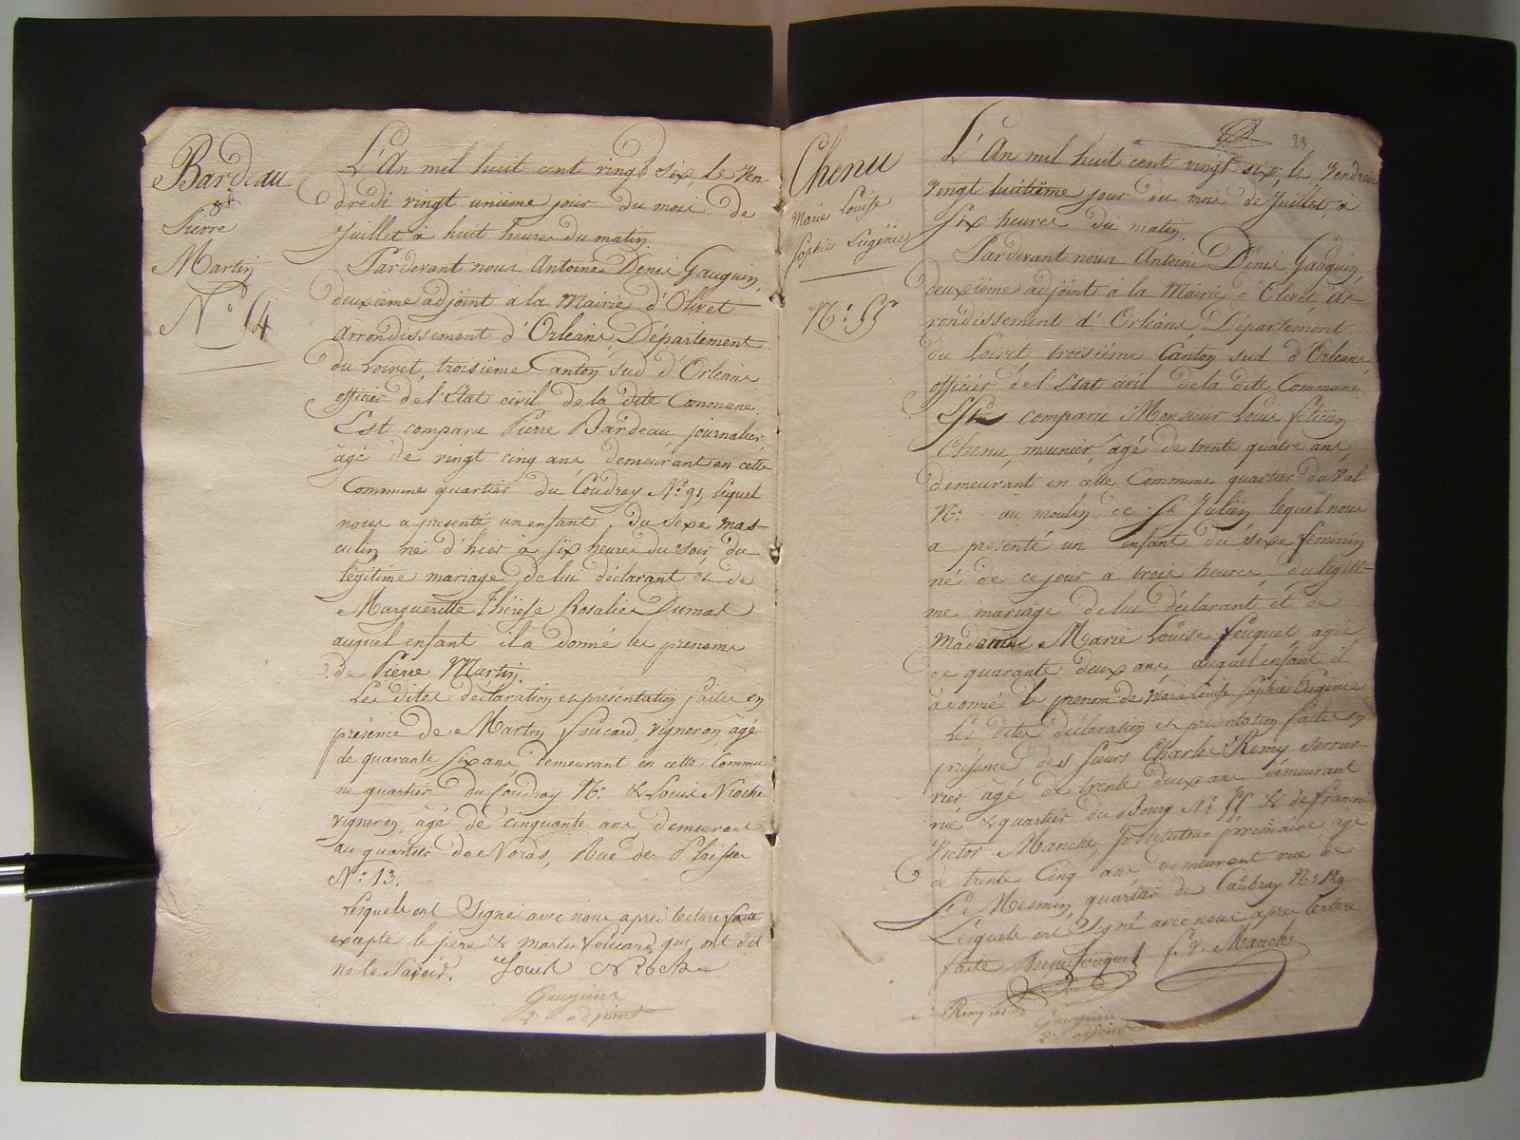 Bardeau
Pierre
Martin
N° 54
L'An mil huit cent vingt six, le Ven
dredi vingt unieme jour du mois de
Juillet à huit heures du matin.
Pardevant nous Antoine Denis Gauguin,
deuxième adjoint a la Mairie d'Olivet
arrondissement d'Orléans Département
du Loiret, troisième Canton Sud d'Orléans
officier de l'Etat civil de la dite Commune.
Est comparu Pierre Bardeau journalier,
âgé de vingt cinq ans demeurant en cette
Commune quartier du Coudray N° 91, lequel
nous a présenté un enfant, du sexe mas-
culin né d'hier à six heures du soir, du
légitime mariage de lui déclarant et de
Marguerite Thérese Rosalie Dumas
auquel enfant il a donné les prenoms
de Pierre Martin.
Les dites déclaration et presentation faites en
présence de Martin Foucard, vigneron, âgé
de quarante six ans demeurant en cette Commu
ne quartier du Coudray N° & Louis Nioche
vigneron, âgé de cinquante ans demeurant
au quartier de Noras, Rue de Plaisse
N° 13.
Lesquels ont Signé avec nous après lecture faite
excepté le père & Martin Foucard qui ont dit
ne le Savoir. Louis Nioche
Gauguin
2e adjoint
Chenu
Marie Louise
Sophie Eugénie
N° 55
29
L'An mil huit cent vingt six, le Vendredi
vingt huitième jour du mois de Juillet, a
six heures du matin.
Pardevant nous Antoine Denis Gauguin,
deuxième adjoint a la Mairie d'Olivet Ar-
rondissement d'Orléans Département
du Loiret troisième Canton Sud d'Orléans
officier de l'Etat civil de la dite Commune.
Est comparu Monsieur Louis Félicien
Chenu, meunier, âgé de trente quatre ans,
demeurant en cette Commune quartier du Val
N° au moulin de St Julien lequel nous
a présenté un enfant du sexe féminin
né de ce jour a trois heures, du légiti-
me mariage de lui déclarant et de
Madame Marie Louise Fouquet agée
de quarante deux ans auquel enfant il
a donné le prenom de Marie Louise Sophie Eugénie
Les dite déclaration et presentation faites en
présence des Sieurs Charle Remy serru-
rier agé de trente deux ans demeurant
rue & quartier du Bourg N° 55 & de Francois
Victor Manche, Instituteur primaire, agé
de trente Cinq ans demeurant rue de
St Mesmin quartier de Caubray N°
Lesquels ont Signé avec nous apres lecture
faite Chenu Fouquet f. V. Manche
Remy
Gauguin
2e adjoint